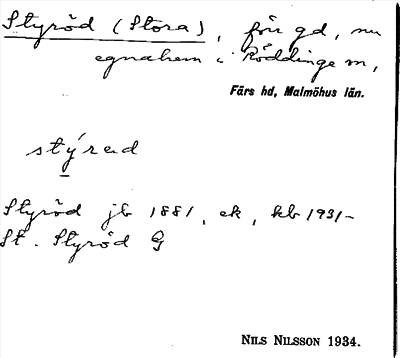 Styröd (Stora), förr gd, nu
egnahem i Röddinge m,
Färs hd, Malmöhus län.
stýrad
Styröd jb 1881, ek, kb 1931-
St. Styröd G
NILS NILSSON 1934.